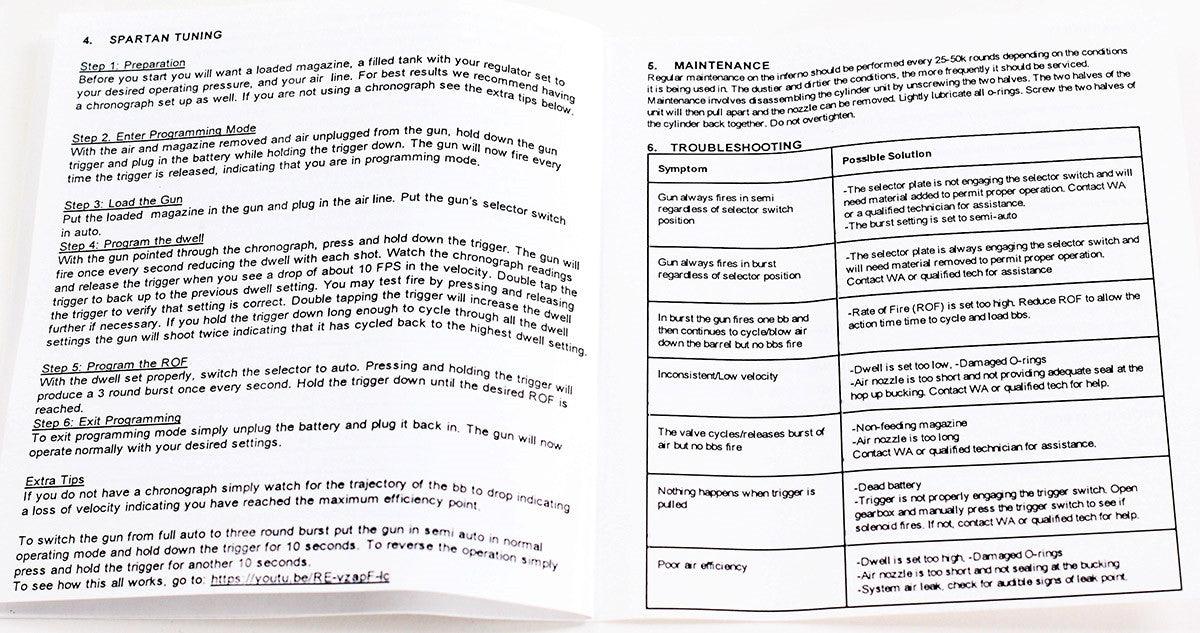 4. SPARTAN TUNING
Step 1: Preparation
Before you start you will want a loaded magazine, a filled tank with your regulator set to
your desired operating pressure, and your air line. For best results we recommend having
a chronograph set up as well. If you are not using a chronograph see the extra tips below.
Step 2. Enter Programming Mode
With the air and magazine removed and air unplugged from the gun, hold down the gun
trigger and plug in the battery while holding the trigger down. The gun will now fire every
time the trigger is released, indicating that you are in programming mode.
Step 3: Load the Gun
Put the loaded magazine in the gun and plug in the air line. Put the gun's selector switch
in auto.
Step 4: Program the dwell
With the gun pointed through the chronograph, press and hold down the trigger. The gun will
fire once every second reducing the dwell with each shot. Watch the chronograph readings
and release the trigger when you see a drop of about 10 FPS in the velocity. Double tap the
trigger to back up to the previous dwell setting. You may test fire by pressing and releasing
the trigger to verify that setting is correct. Double tapping the trigger will increase the dwell
further if necessary. If you hold the trigger down long enough to cycle through all the dwell
settings the gun will shoot twice indicating that it has cycled back to the highest dwell setting.
Step 5: Program the ROF
With the dwell set properly, switch the selector to auto. Pressing and holding the trigger will
produce a 3 round burst once every second. Hold the trigger down until the desired ROF is
reached.
Step 6: Exit Programming
To exit programming mode simply unplug the battery and plug it back in. The gun will now
operate normally with your desired settings.
Extra Tips
If you do not have a chronograph simply watch for the trajectory of the bb to drop indicating
a loss of velocity indicating you have reached the maximum efficiency point.
To switch the gun from full auto to three round burst put the gun in semi auto in normal
operating mode and hold down the trigger for 10 seconds. To reverse the operation simply
press and hold the trigger for another 10 seconds.
To see how this all works, go to: https://youtu.be/RE-vzapF-lc
5. MAINTENANCE
Regular maintenance on the inferno should be performed every 25-50k rounds depending on the conditions
it is being used in. The dustier and dirtier the conditions, the more frequently it should be serviced.
Maintenance involves disassembling the cylinder unit by unscrewing the two halves. The two halves of the
unit will then pull apart and the nozzle can be removed. Lightly lubricate all o-rings. Screw the two halves of
the cylinder back together. Do not overtighten.
6. TROUBLESHOOTING
Symptom
Possible Solution
Gun always fires in semi
regardless of selector switch
position
-The selector plate is not engaging the selector switch and will
need material added to permit proper operation. Contact WA
or a qualified technician for assistance.
-The burst setting is set to semi-auto
Gun always fires in burst
regardless of selector position
-The selector plate is always engaging the selector switch and
will need material removed to permit proper operation.
Contact WA or qualified tech for assistance
In burst the gun fires one bb and
then continues to cycle/blow air
down the barrel but no bbs fire
-Rate of Fire (ROF) is set too high. Reduce ROF to allow the
action time time to cycle and load bbs.
Inconsistent/Low velocity
-Dwell is set too low, -Damaged O-rings
-Air nozzle is too short and not providing adequate seal at the
hop up bucking. Contact WA or qualified tech for help.
The valve cycles/releases burst of
air but no bbs fire
-Non-feeding magazine
-Air nozzle is too long
Contact WA or qualified technician for assistance.
Nothing happens when trigger is
pulled
-Dead battery
-Trigger is not properly engaging the trigger switch. Open
gearbox and manually press the trigger switch to see if
solenoid fires. If not, contact WA or qualified tech for help.
Poor air efficiency
-Dwell is set too high, -Damaged O-rings
-Air nozzle is too short and not sealing at the bucking
-System air leak, check for audible signs of leak point.